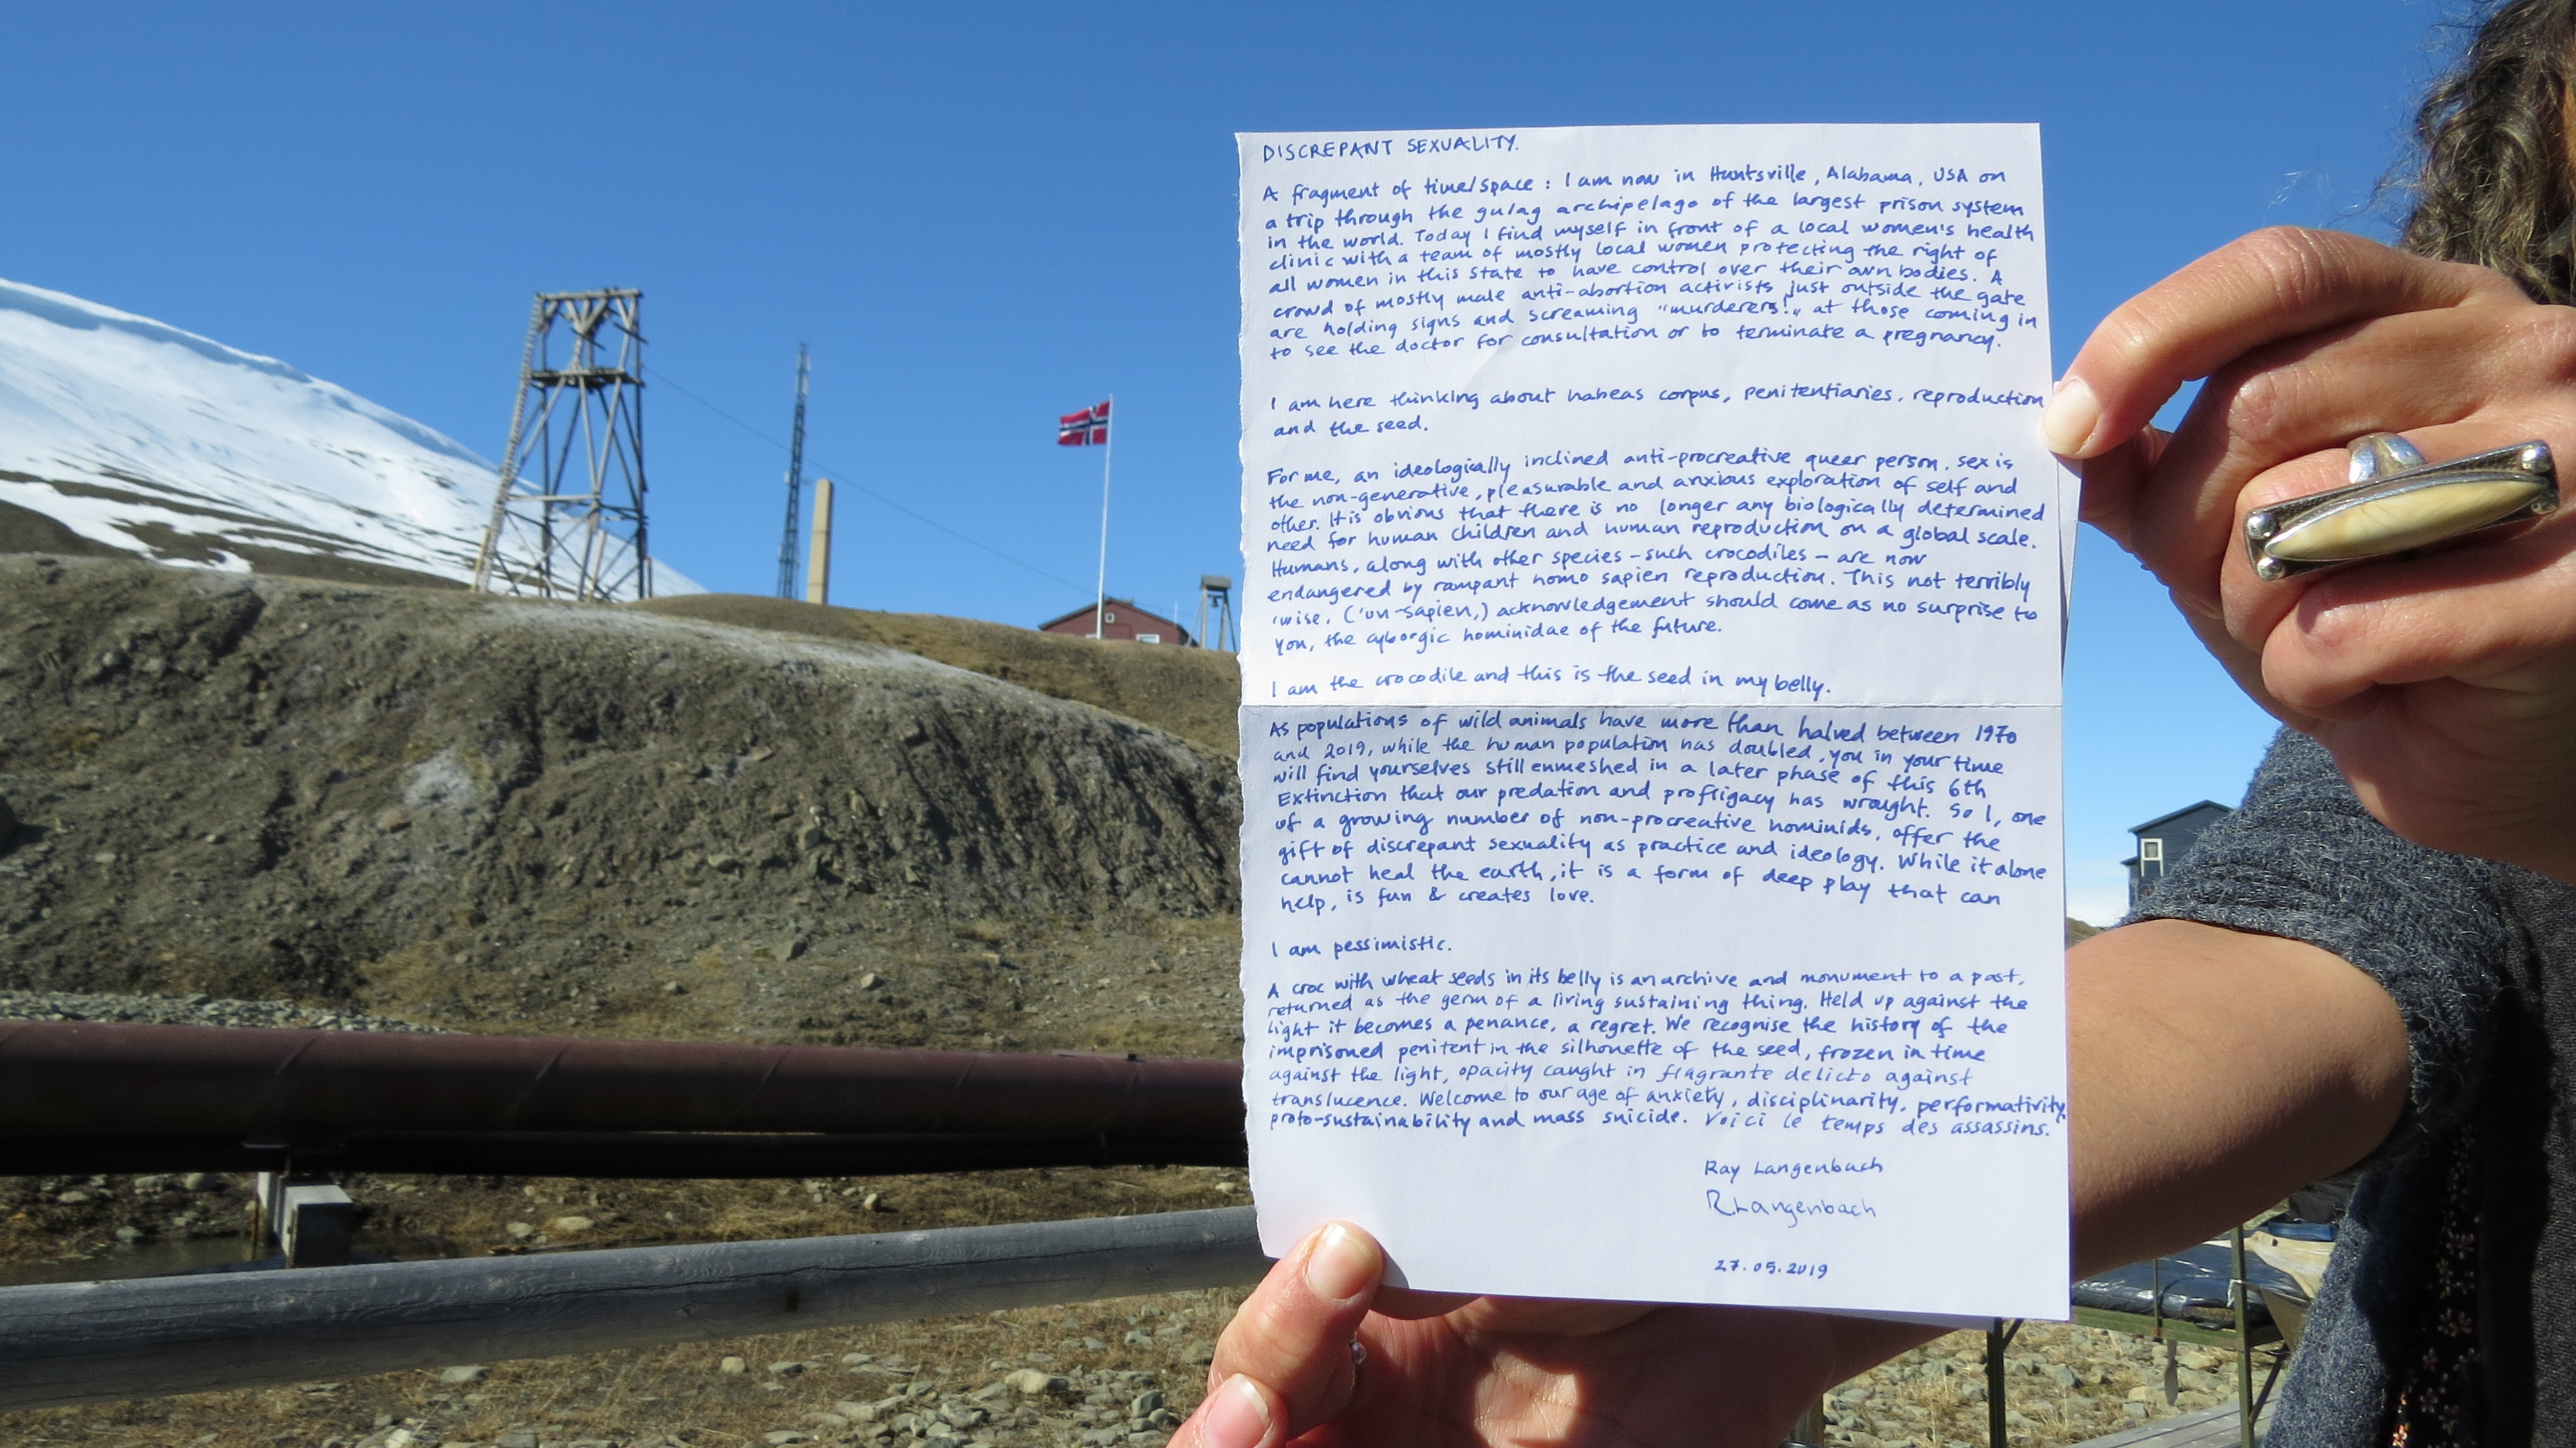 DISCREPANT SEXUALITY.
A fragment of time/space : I am now in Huntsville, Alabama, USA on
a trip through the gulag archipelago of the largest prison system
in the world. Today I find myself in front of a local women's health
clinic with a team of mostly local women protecting the right of
all women in this state to have control over their own bodies. A
crowd of mostly male anti-abortion activists just outside the gate
are holding signs and screaming "murderers!" at those coming in
to see the doctor for consultation or to terminate a pregnancy.
I am here thinking about habeas corpus, penitentiaries, reproduction
and the seed.
For me, an ideologically inclined anti-procreative queer person, sex is
the non-generative, pleasurable and anxious exploration of self and
other. It is obvious that there is no longer any biologically determined
need for human children and human reproduction on a global scale.
Humans, along with other species – such crocodiles – are now
endangered by rampant homo sapien reproduction. This not terribly
'wise, ('un-sapien,) acknowledgement should come as no surprise to
you, the cyborgic hominidae of the future.
I am the crocodile and this is the seed in my belly.
As populations of wild animals have more than halved between 1970
and 2019, while the human population has doubled, you in your time
will find yourselves still enmeshed in a later phase of this 6th
Extinction that our predation and profligacy has wrought. So I, one
of a growing number of non-procreative hominids, offer the
gift of discrepant sexuality as practice and ideology. While it alone
cannot heal the earth, it is a form of deep play that can
help, is fun & creates love.
I am pessimistic.
A croc with wheat seeds in its belly is an archive and monument to a past,
returned as the germ of a living sustaining thing. Held up against the
light it becomes a penance, a regret. We recognise the history of the
imprisoned penitent in the silhouette of the seed, frozen in time
against the light, opacity caught in flagrante delicto against
translucence. Welcome to our age of anxiety, disciplinarity, performativity,
proto-sustainability and mass suicide. Voici le temps des assassins.
Ray Langenbach
R.Langenbach
27.05.2019